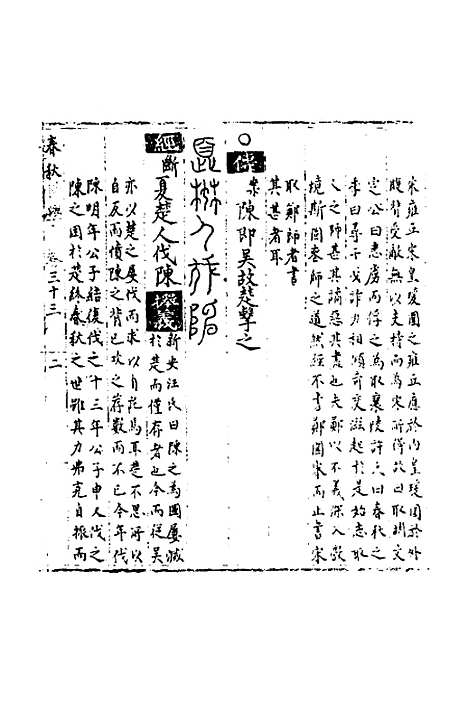 宋雍丘宋皇瑗圍之雍丘應於內皇瑗圍於外
腹背受敵無以支持而為宋所得故曰取胡文
定公曰悉虜而俘之為取襄陵許氏曰春秋之
季日尋干戈詐力相傾奇變滋起於是始志取
人之師甚其譎惡非盡也夫鄭以不義深入敵
境斯固喪師之道然經不書鄭圍宋而止書宋
取鄭師者書
其甚者耳
○傳陳即吳故楚擊之
經斷夏楚人伐陳
新安汪氏曰陳之為國屢滅
於楚而僅存者也今而從吳
亦以楚之屢伐而求以自庇焉耳楚不思所以
自反而憤陳之背已攻之荐數而不已今年伐
陳明年公子結復伐之十三年公子申人伐之
陳之困於楚終春秋之世雖其力弗克自振而
春秋 卷三十三 二